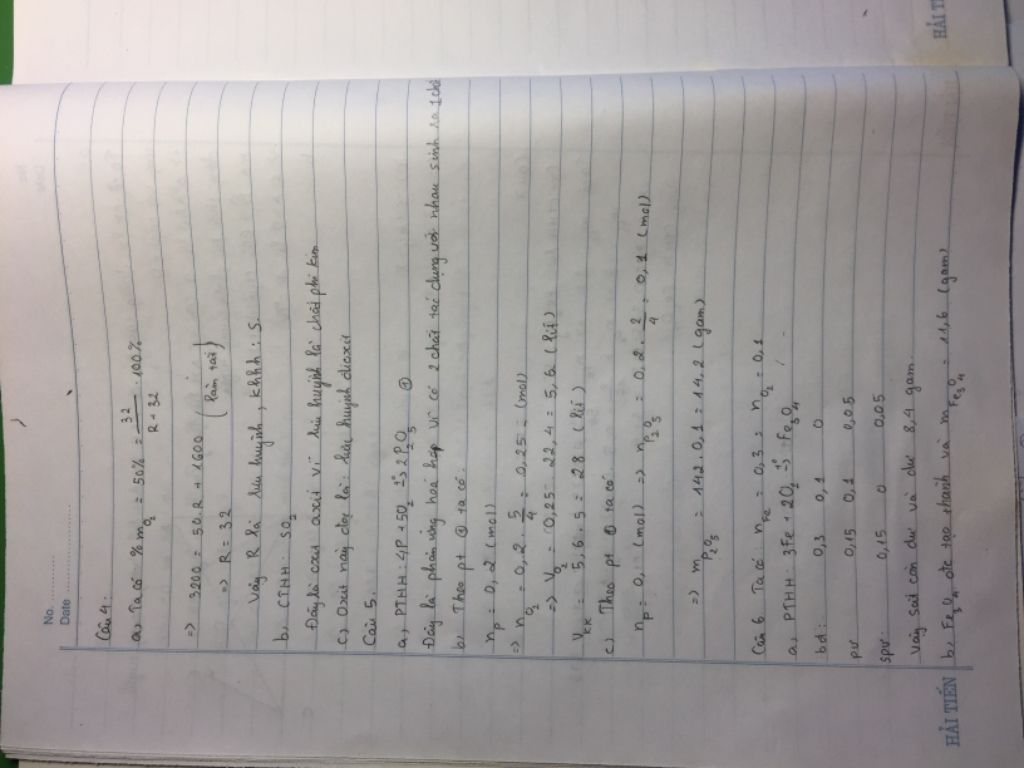 No. ..........
Date ..........
Câu 4:
a) Ta có: % m O₂ = 50% = 32/(R + 32) . 100%
=> 3200 = 50R + 1600
=> R = 32 (Phần tai)
Vậy R là lưu huỳnh, khhh: S.
b, CTHH: SO₂
Đây là oxit axit vì lưu huỳnh là chất phi kim
c, Oxit này đọc là: lưu huỳnh đioxit
Câu 5.
a, PTHH: 4P + 5O₂ -t°-> 2P₂O₅ ①
Đây là phản ứng hoá hợp vì có 2 chất tác dụng với nhau sinh ra 1 chất
b, Theo pt ① ta có:
nP = 0,2 (mol)
=> nO₂ = 0,2 . 5/4 = 0,25 (mol)
=> VO₂ = 0,25 . 22,4 = 5,6 (lít)
Vkk = 5,6 . 5 = 28 (lít)
c, Theo pt ① ta có:
nP = 0, (mol) => nP₂O₅ = 0,2 . 2/4 = 0,1 (mol)
=> mP₂O₅ = 142 . 0,1 = 14,2 (gam)
Câu 6 Ta có nFe = 0,3 ; nO₂ = 0,1
a, PTHH: 3Fe + 2O₂ -t°-> Fe₃O₄
bđ: 0,3 0,1 0
pư 0,15 0,1 0,05
spư: 0,15 0 0,05
Vậy sắt còn dư và dư 8,4 gam.
b, Fe₃O₄ đc tạo thành và mFe₃O₄ = 11,6 (gam)
HẢI TIẾN
HẢI TIẾN